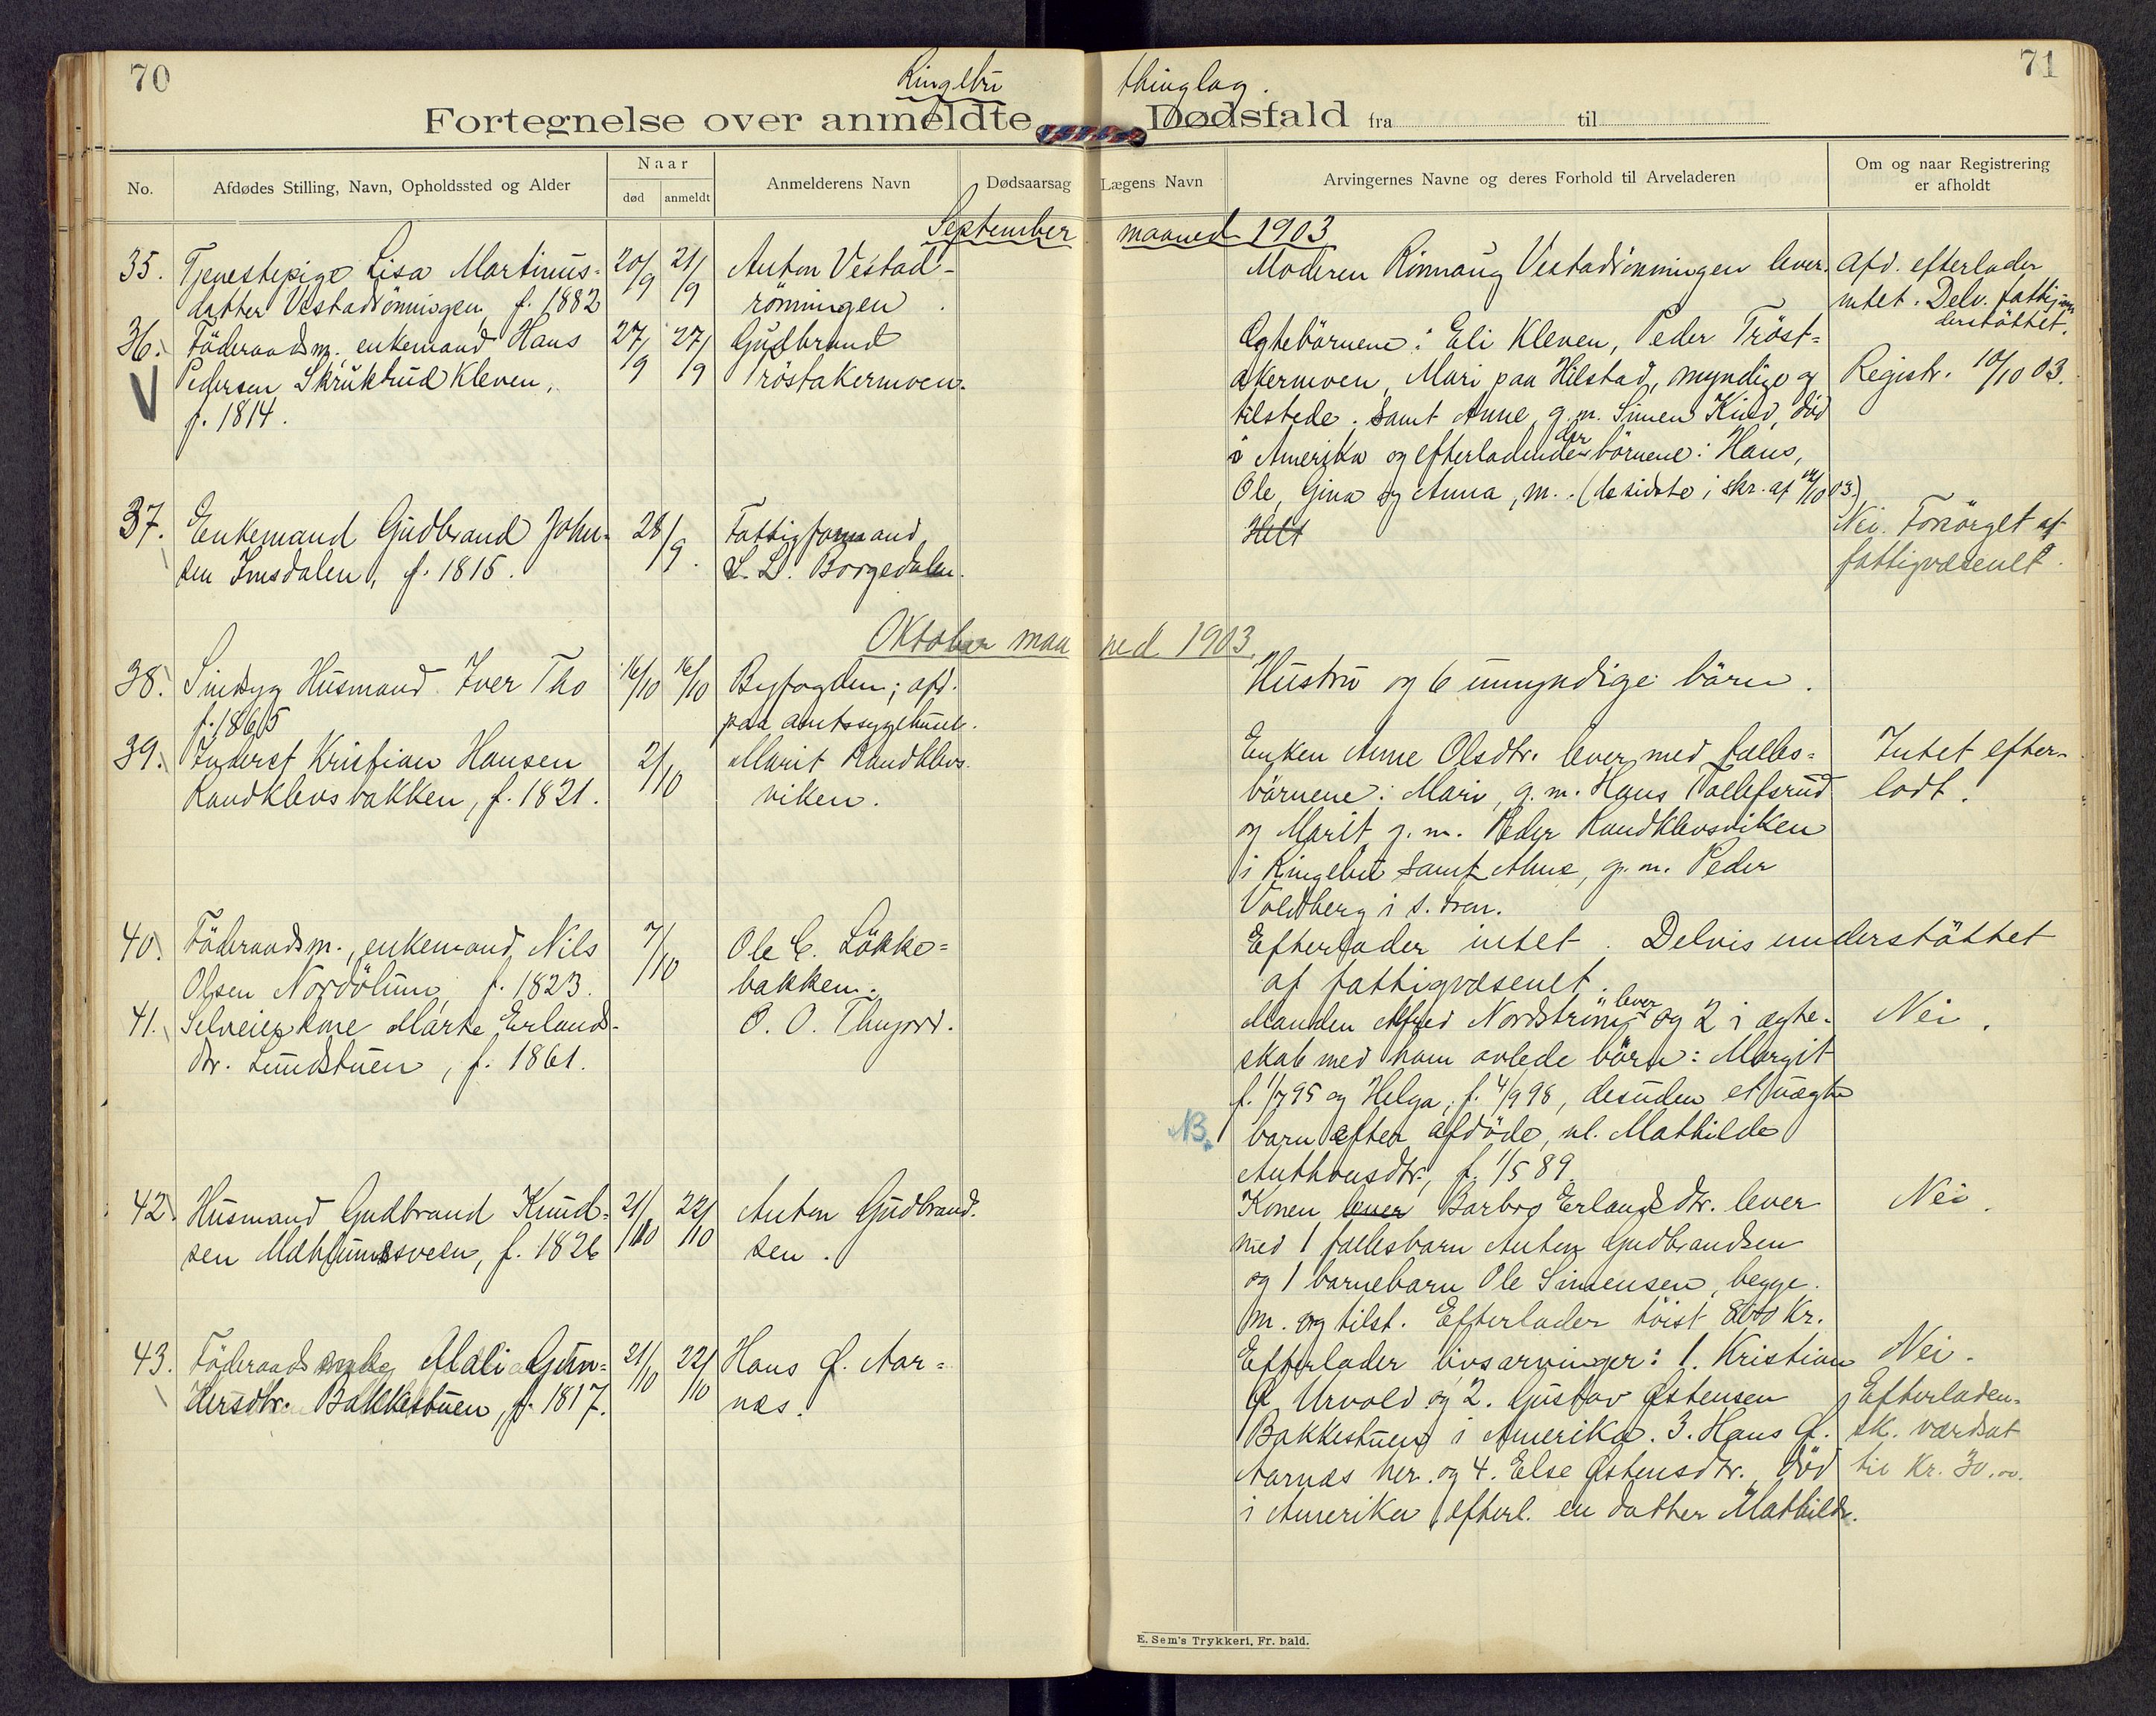 70
71
Ringebu thinglag.
Fortegnelse over anmeldte Dødsfald fra til
No.
Afdødes Stilling, Navn, Opholdssted og Alder
Naar
død
anmeldt
Anmelderens Navn
Dødsaarsag
Lægens Navn
Arvingernes Navne og deres Forhold til Arveladeren
Om og naar Registrering
er afholdt
September maaned 1903
35. Tjenestepige Lisa Martinus-
datter Vestadrönningen, f. 1882
20/9 21/9
Anton Vestad-
rönningen.
Moderen Rönnaug Vestadrönningen lever.
Afd. efterlader
intet. Delv. fattigun
derstöttet.
36. Föderaadsm. enkemand Hans
Pedersen Skrukrud Kleven,
f. 1814.
V
27/9 27/9
Gudbrand
Tröstakermoen.
Egtebörnene: Eli Kleven, Peder Tröst-
akermoen, Mari paa Hilstad, myndige og
tilstede. Samt Anne, g. m. Simen, död
i Amerika og efterladende der börnene: Hans,
Ole, Gina og Anna, m.. (de sidste i skr. af 14/10 03.)
Registr. 10/10 03.
37. Enkemand Gudbrand John-
sen Imsdalen, f. 1815.
28/9.
Fattigformand
L. L. Borgedalen.
Helt
Nei. Forsörget af
fattigvæsenet.
Oktober maaned 1903.
38. Sindsyg Husmand Iver Tho
f. 1865
16/10 16/10
Byfogden; afd.
paa amtssygehuset.
Hustru og 6 umyndige börn.
39. Inderst Kristian Hansen
Randklevsbakken, f. 1821.
2/10
Marit Randklevs-
viken.
Enken Anne Olsdtr. lever med fælles-
börnene: Mari, g. m. Hans Tollefsrud
og Marit g. m. Peder Randklevsviken
i Ringebu samt Ane, g. m. Peder
Voldberg i s. Fron.
Intet efter-
ladt.
40. Föderaadsm., enkemand Nils
Olsen Nordölum, f. 1823.
7/10
Ole C. Lökke-
bakken.
Efterlader intet. Delvis understöttet
af fattigvæsenet.
41. Selveierkone Marte Erlands-
dtr. Lundstuen, f. 1861.
O. O. Thujord.
Manden Alfred Nordström lever og 2 i ægte-
skab med ham avlede börn: Margit
f. 1/7 95 og Helga, f. 4/9 98, desuden et uægte
NB.
barn efter afdöde, nl. Mathilde
Anthonsdtr., f. 1/5 89.
Nei.
42. Husmand Gudbrand Knud-
sen Mæhlumssveen, f. 1826
21/10 22/10
Anton Gudbrand-
sen.
Konen lever Barbro Erlandsdtr. lever
med 1 fællesbarn Anton Gudbrandsen
og 1 barnebarn Ole Simensen, begge
m. og tilst. Efterlader höist 800 Kr.
Nei.
43. Föderaadsenke Mali Gun-
dersdtr. Bakkestuen, f. 1817.
21/10 22/10
Hans Ø. Aar-
næs.
Efterlader livsarvinger: 1. Kristian
Ø. Urvold og 2. Gustav Østensen
Bakkestuen i Amerika. 3. Hans Ø.
Aarnæs her. og 4. Else Østensdtr. död
i Amerika efterl. en datter Mathilde.
Nei.
Efterladen-
sk. værdsat
til Kr. 30.00.
E. Sem's Trykkeri, Fr.hald.